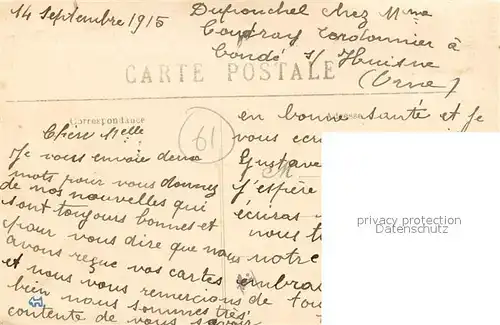 14 Septembre 1915
Dufronchel chez Mme
Coudray Cordonnier à
Condé s/ Huisne
(Orne)
CARTE POSTALE
Correspondance
61
Chère Melle
Je vous envoie deux
mots pour vous donner
de nos nouvelles qui
sont toujours bonnes et
pour vous dire que nous
avons reçue vos cartes
et nous vous remercions
bien nous sommes très
contente de vous savoir
en bonne santé et je
vous
Gustave
M
j'espère
écriras
nous
notre
de
privacy protection
Datenschutz